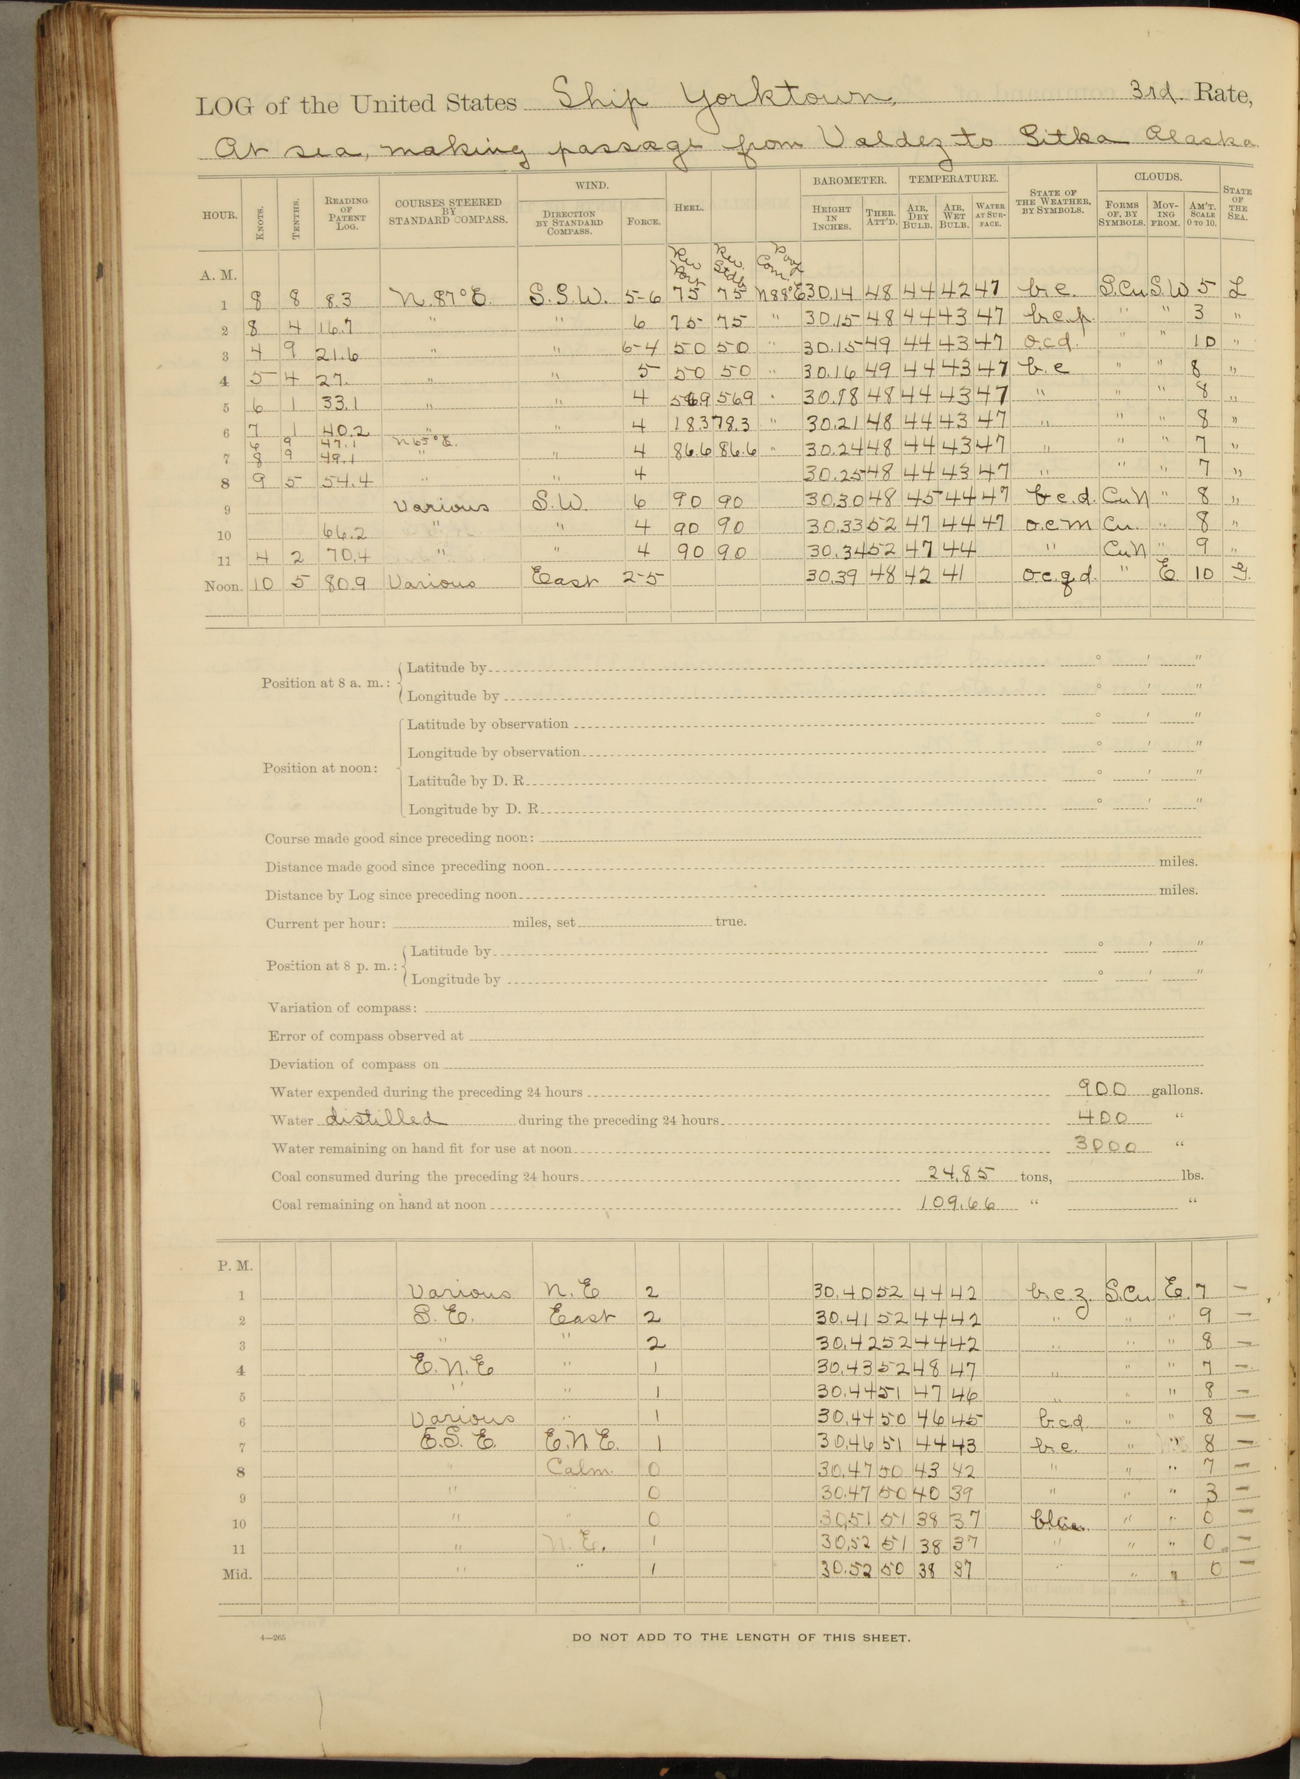 LOG of the United States Ship Yorktown, 3rd. Rate,
At sea, making passage from Valdez to Sitka Alaska
HOUR. KNOTS. TENTHS. READING OF PATENT LOG. COURSES STEERED BY STANDARD COMPASS. WIND. DIRECTION BY STANDARD COMPASS. FORCE. HEEL. BAROMETER. HEIGHT IN INCHES. THER. ATT'D. TEMPERATURE. AIR, DRY BULB. AIR, WET BULB. WATER AT SURFACE. STATE OF THE WEATHER, BY SYMBOLS. CLOUDS. FORMS OF, BY SYMBOLS. MOVING FROM. AM'T. SCALE 0 TO 10. STATE OF THE SEA.
A. M. Rev Port Rev. Stdb
1 8 8 8.3 N. 87° E. S.S.W. 5-6 75 75 N 88° E 30.14 48 44 42 47 b.c. S.Cu S.W 5 L
2 8 4 16.7 " " 6 75 75 " 30.15 48 44 43 47 b.c.p. " " 3 "
3 4 9 21.6 " " 6-4 50 50 " 30.15 49 44 43 47 o.c.d. " " 10 "
4 5 4 27. " " 5 50 50 " 30.16 49 44 43 47 b.c " " 8 "
5 6 1 33.1 " " 4 56.9 56.9 " 30.18 48 44 43 47 " " " 8 "
6 7 1 40.2 " " 4 78.3 78.3 " 30.21 48 44 43 47 " " " 8 "
6 9 47.1 N 65° E.
7 8 9 49.1 " " 4 86.6 86.6 " 30.24 48 44 43 47 " " " 7 "
8 9 5 54.4 " " 4 30.25 48 44 43 47 " " " 7 "
9 Various S.W. 6 90 90 30.30 48 45 44 47 b.c.d. CuN " 8 "
10 66.2 " " 4 90 90 30.33 52 47 44 47 o.c.m Cu. " 8 "
11 4 2 70.4 " " 4 90 90 30.34 52 47 44 " CuN " 9 "
Noon. 10 5 80.9 Various East 2-5 30.39 48 42 41 o.c.q.d. " E. 10 G.
Position at 8 a. m.: Latitude by ° ′ ″
Longitude by ° ′ ″
Position at noon: Latitude by observation ° ′ ″
Longitude by observation ° ′ ″
Latitude by D. R. ° ′ ″
Longitude by D. R. ° ′ ″
Course made good since preceding noon:
Distance made good since preceding noon miles.
Distance by Log since preceding noon miles.
Current per hour: miles, set true.
Position at 8 p. m.: Latitude by ° ′ ″
Longitude by ° ′ ″
Variation of compass:
Error of compass observed at
Deviation of compass on
Water expended during the preceding 24 hours 900 gallons.
Water distilled during the preceding 24 hours 400 "
Water remaining on hand fit for use at noon 3000 "
Coal consumed during the preceding 24 hours 24.85 tons, lbs.
Coal remaining on hand at noon 109.66 " "
P. M.
1 Various N. E 2 30.40 52 44 42 b.c.z. S.Cu. E. 7 —
2 S. E. East 2 30.41 52 44 42 " " " 9 —
3 " " 2 30.42 52 44 42 " " " 8 —
4 E. N. E " 1 30.43 52 48 47 " " " 7 —
5 " " 1 30.44 51 47 46 " " " 8 —
6 Various " 1 30.44 50 46 45 b.c.d " " 8 —
7 E. S. E. E. N E. 1 30.46 51 44 43 b.c. " " 8 —
8 " Calm. 0 30.47 50 43 42 " " " 7 —
9 " " 0 30.47 50 40 39 " " " 3 —
10 " " 0 30.51 51 38 37 " " 0 —
11 " N. E. 1 30.52 51 38 37 " " " 0 —
Mid. " " 1 30.52 50 38 37 " " " 0 —
4—265
DO NOT ADD TO THE LENGTH OF THIS SHEET.